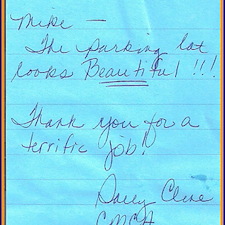 Mike —
The parking lot
looks Beautiful !!!
Thank you for a
terrific job!